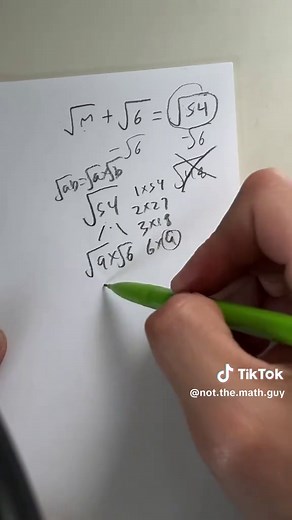 √m + √6 = √54
-√6 -√6
√ab=√a×√b
√54 1×54
2×27
3×18
√9×√6 6×9
TikTok
@not.the.math.guy